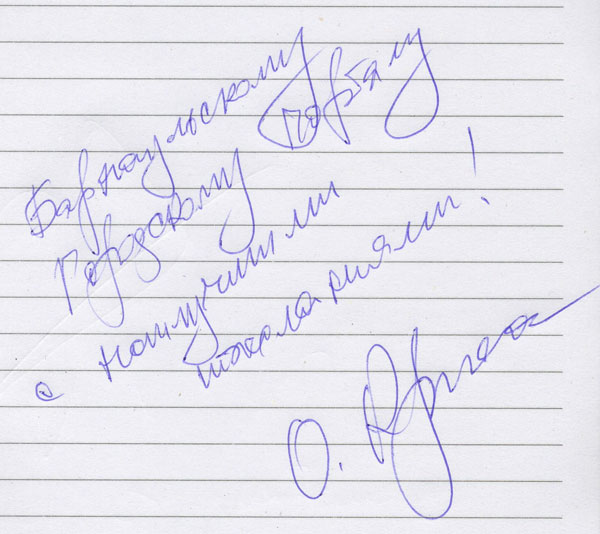 Барнаульскому
Городскому порталу
с наилучшими
пожеланиями!
О.